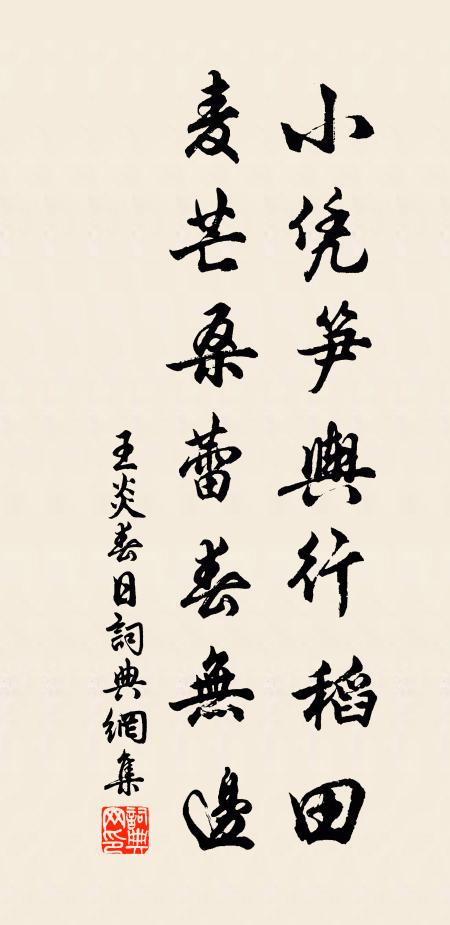 小凭笋輿行稻田
麦芒桑蕾春無邊
王炎春日詞典網集
詞典網印